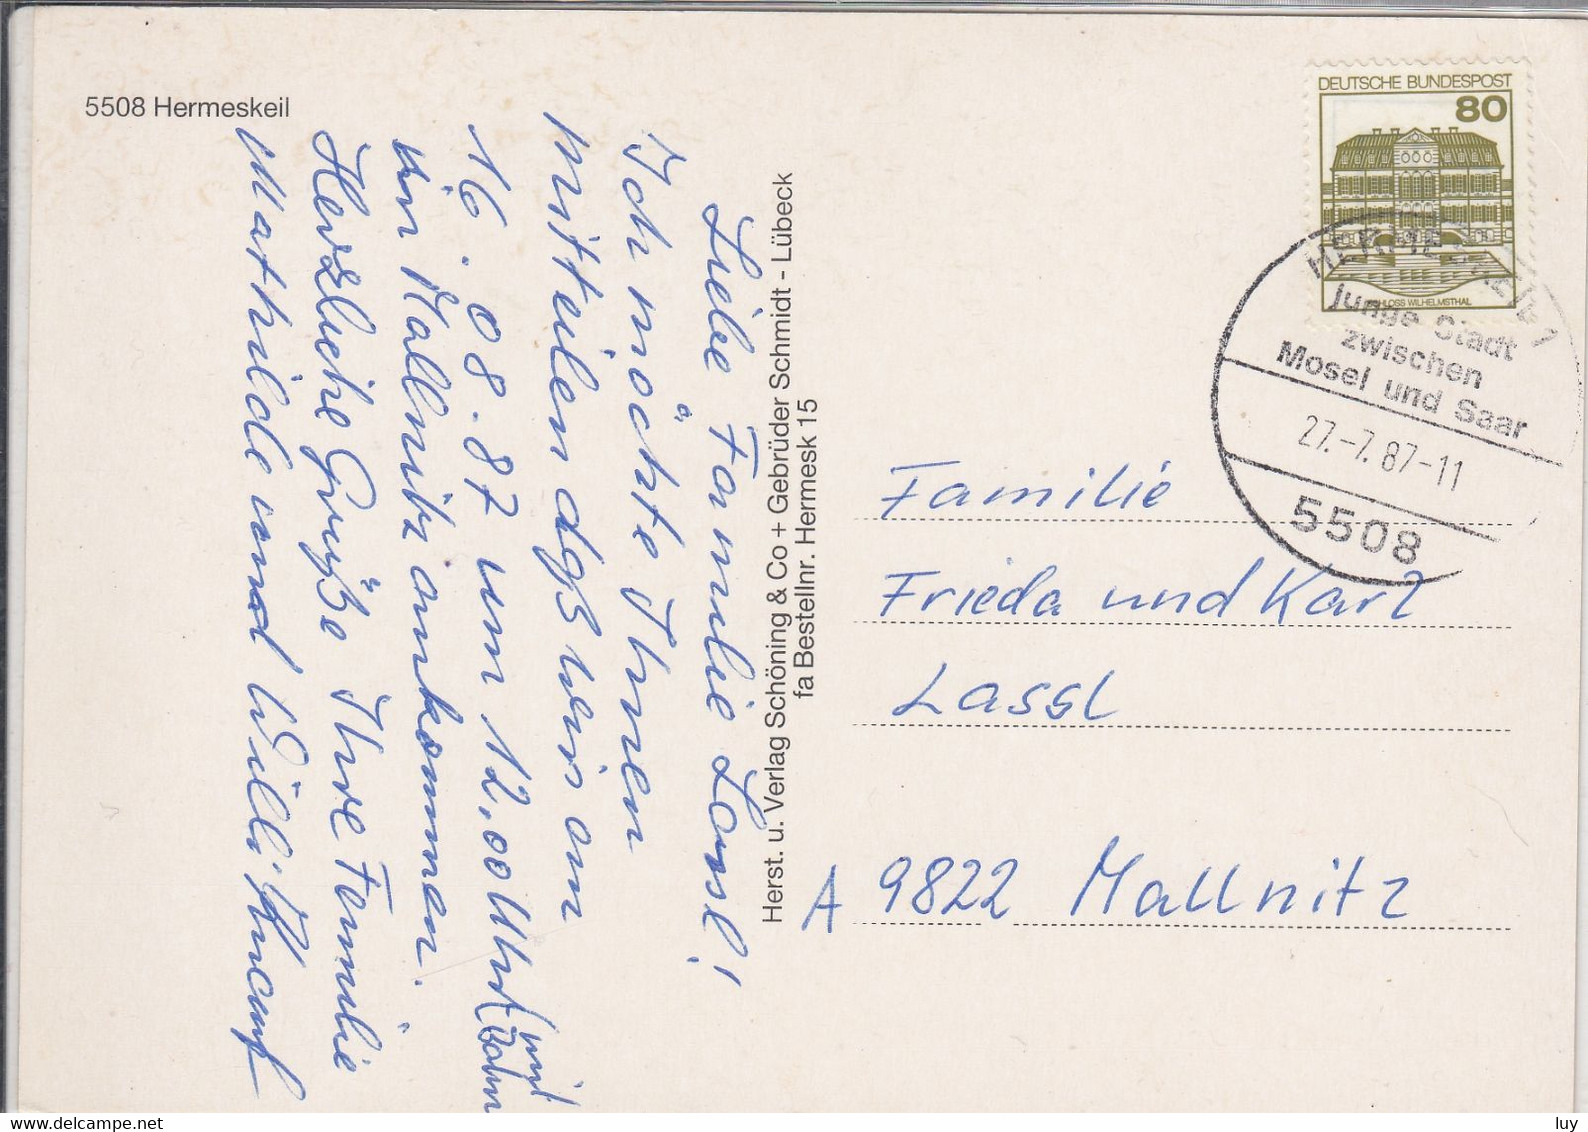 5508 Hermeskeil
Liebe Familie Lassl!
Ich möchte Ihnen
mitteilen daß wir am
16.08.87 um 12.00 Uhr (mit Bahn
in Mallnitz ankommen.
Herzliche Grüße Ihre Familie
Mathilde und Willi
Herst. u. Verlag Schöning & Co + Gebrüder Schmidt - Lübeck
fa Bestellnr. Hermesk 15
DEUTSCHE BUNDESPOST
80
SCHLOSS WILHELMSTHAL
HERMESKEIL 1
junge Stadt
zwischen
Mosel und Saar
27.-7.87-11
5508
Familie
Frieda und Karl
Lassl
A 9822 Mallnitz
delcampe.net
luy